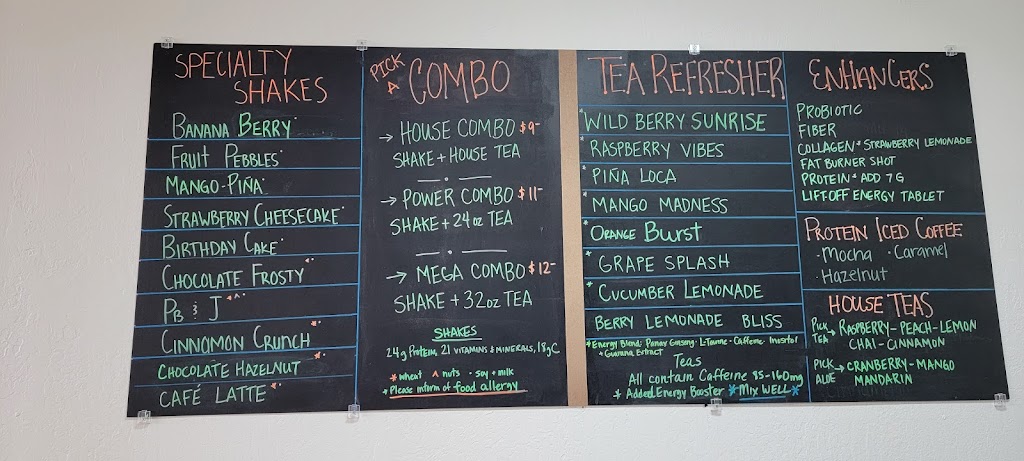 SPECIALTY
SHAKES
BANANA BERRY
FRUIT PEBBLES
MANGO-PIÑA
STRAWBERRY CHEESECAKE
BIRTHDAY CAKE
CHOCOLATE FROSTY
PB & J
CINNAMON CRUNCH
CHOCOLATE HAZELNUT
CAFÉ LATTE
PICK A COMBO
→ HOUSE COMBO $9-
SHAKE + HOUSE TEA
→ POWER COMBO $11-
SHAKE + 24oz TEA
→ MEGA COMBO $12-
SHAKE + 32oz TEA
SHAKES
24g PROTEIN, 21 VITAMINS & MINERALS, 18gC
* wheat ^ nuts · soy + milk
* Please inform of food allergy
TEA REFRESHER
*WILD BERRY SUNRISE
*RASPBERRY VIBES
*PIÑA LOCA
*MANGO MADNESS
*ORANGE BURST
*GRAPE SPLASH
*CUCUMBER LEMONADE
BERRY LEMONADE BLISS
*Energy Blend: Panax Ginseng · L-Taurine · Caffeine · Inositol
+ Guarana Extract
Teas
All contain Caffeine 85-160mg
* Added Energy Booster *MIX WELL*
ENHANCERS
PROBIOTIC
FIBER
COLLAGEN * STRAWBERRY LEMONADE
FAT BURNER SHOT
PROTEIN * ADD 7G
LIFTOFF ENERGY TABLET
PROTEIN ICED COFFEE
·Mocha ·Caramel
·Hazelnut
HOUSE TEAS
PICK TEA → RASPBERRY-PEACH-LEMON
CHAI-CINNAMON
PICK ALOE → CRANBERRY-MANGO
MANDARIN